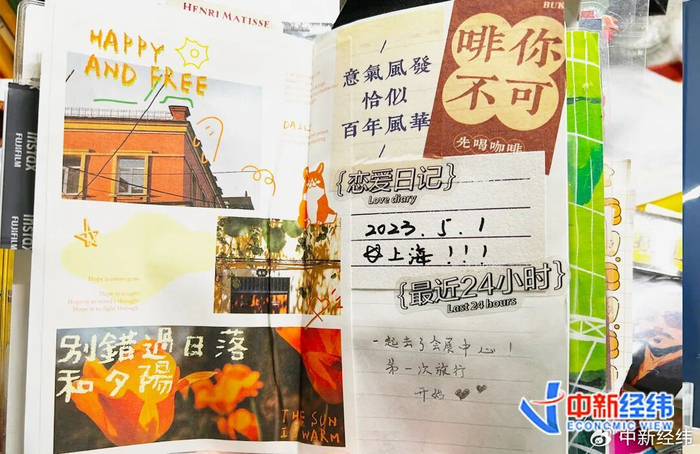 HENRI MATISSE
HAPPY
AND FREE
instax
FUJIFILM
instax
FUJIFILM
別錯過日落
和夕陽
THE SUN
IS WARM
/
意氣風發
恰似
百年風華
/
BUK
啡你
不可
先喝咖啡
{恋爱日记}
Love diary
2023.5.1
@上海!!!
{最近24小时}
Last 24 hours
一起去了会展中心!
第一次旅行
开始
中新经纬
ECONOMIC VIEW
@中新经纬